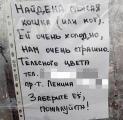 НАЙДЕНА ЛЫСАЯ
КОШКА (ИЛИ КОТ).
ЕЙ ОЧЕНЬ ХОЛОДНО,
НАМ ОЧЕНЬ СТРАШНО.
ТЕЛЕСНОГО ЦВЕТА
ТЕЛ.
ПР-Т. ЛЕНИНА
ЗАБЕРИТЕ ЕЁ,
ПОЖАЛУЙСТА!